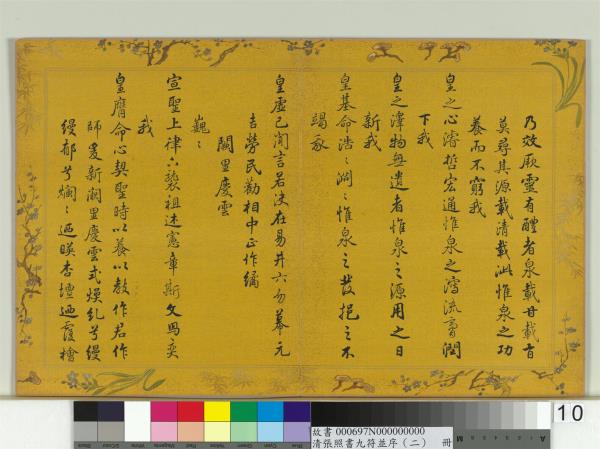 乃效厥靈有醴者泉載甘載旨
莫尋其源載清載泚惟泉之功
養而不窮我
皇之心濬哲宏通惟泉之瀉流膏潤
下我
皇之澤物無遺者惟泉之源用之日
新我
皇基命浩浩淵淵惟泉之發挹之不
竭永
皇虛已聞言若決在易井六勿幕元
吉勞民勸相中正作孚
闕里慶雲
巍巍
宣聖上律下襲祖述憲章斯文為奕
我
皇膺命心契聖時以養以教作君作
師爰新闕里慶雲式煥糺兮縵
縵郁兮爛爛迺暎杏壇迺覆檜
10
故書 000697N000000000
清張照書九符並序(二) 冊